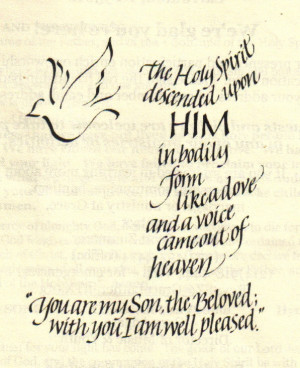 the Holy Spirit
descended upon
HIM
in bodily
form
like a dove
and a voice
came out of
heaven
"You are my Son, the Beloved;
with you I am well pleased."